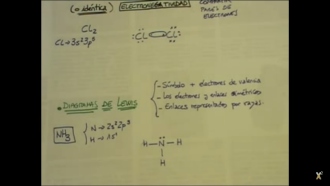 (o idéntica) ELECTRONEGATIVIDAD
PARES DE
ELECTRONES
Cl₂
Cl→3s²3p⁵
:Cl Cl:
• DIAGRAMAS DE LEWIS
- Símbolo + electrones de valencia
- Los electrones y enlaces simétricos
- Enlaces representados por rayas.
NH₃
N→2s²2p³
H→1s¹
H-N-H
H